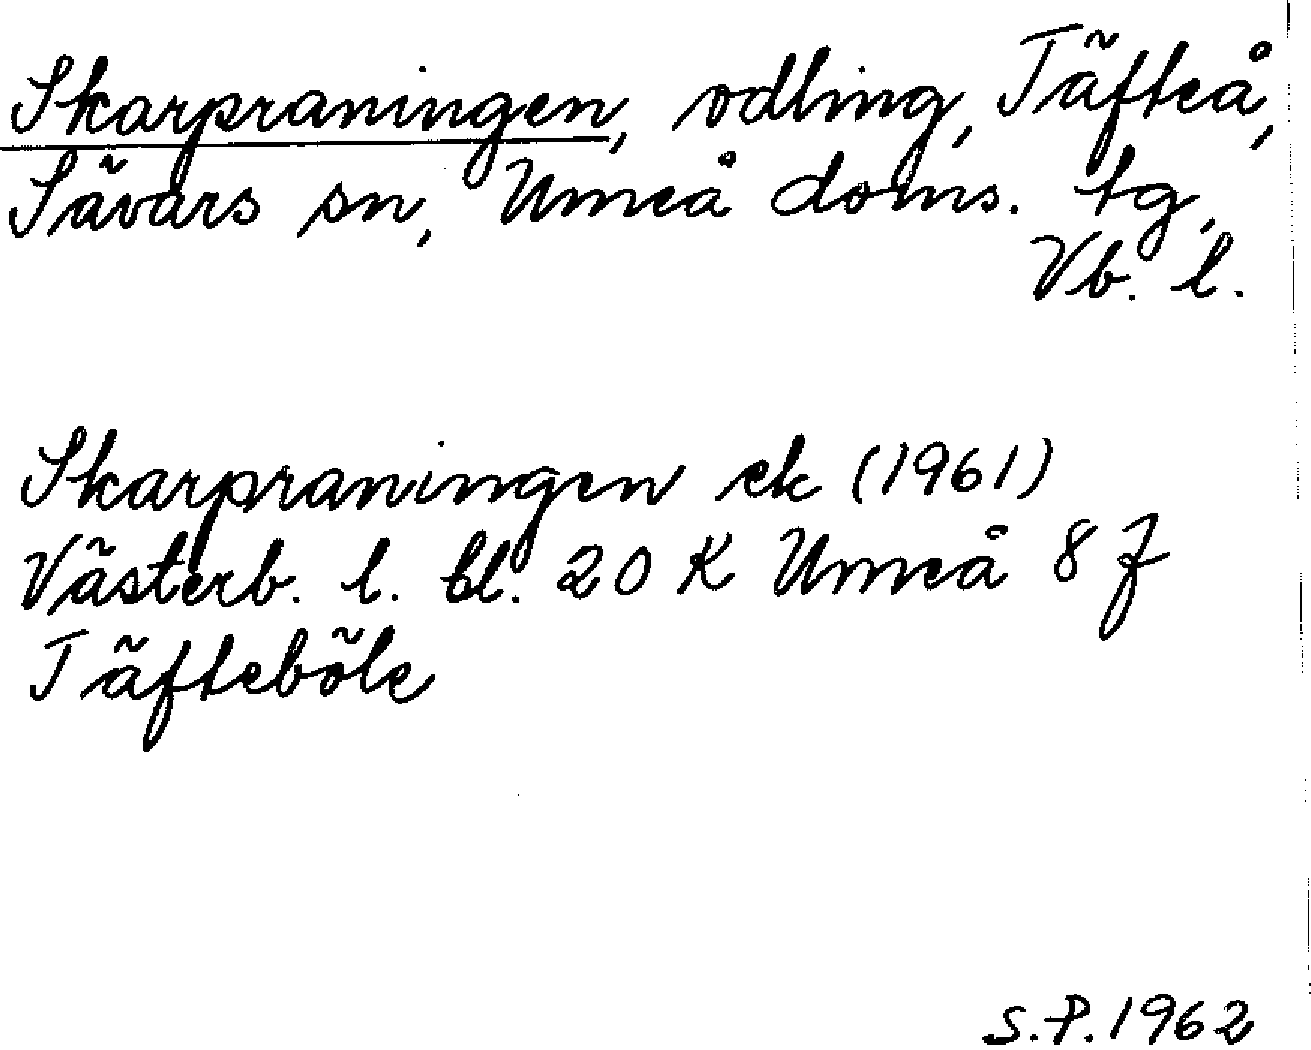 Skarpraningen, odling, Täfteå,
Sävars sn, Umeå doms. tg,
Vb. l.
Skarpraningen ek (1961)
Västerb. l. bl. 20 K Umeå 8 f
Täfteböle
S.P. 1962